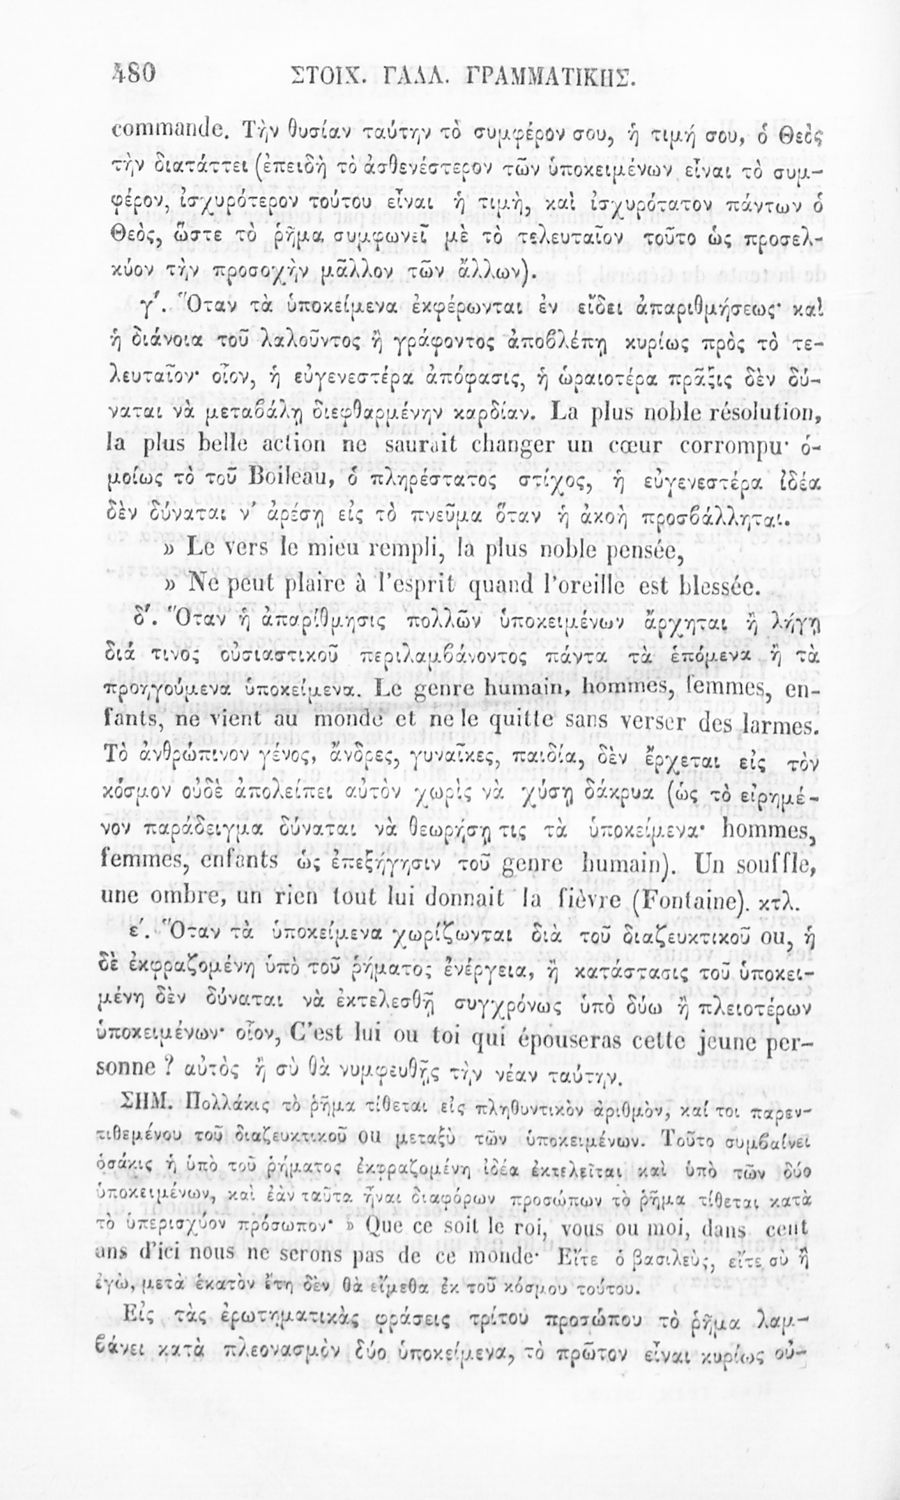 480 ΣΤΟΙΧ. ΓΑΛΛ. ΓΡΑΜΜΑΤΙΚΗΣ.
commande. Τὴν θυσίαν ταύτην τὸ συμφέρον σου, ἡ τιμή σου, ὁ Θεὸς
τὴν διατάττει (ἐπειδὴ τὸ ἀσθενέστερον τῶν ὑποκειμένων εἶναι τὸ συμ-
φέρον, ἰσχυρότερον τούτου εἶναι ἡ τιμὴ, καὶ ἰσχυρότατον πάντων ὁ
Θεὸς, ὥστε τὸ ῥῆμα συμφωνεῖ μὲ τὸ τελευταῖον τοῦτο ὡς προσελ-
κύον τὴν προσοχὴν μᾶλλον τῶν ἄλλων).
γ΄. Ὅταν τὰ ὑποκείμενα ἐκφέρωνται ἐν εἴδει ἀπαριθμήσεως· καὶ
ἡ διάνοια τοῦ λαλοῦντος ἢ γράφοντος ἀποβλέπῃ κυρίως πρὸς τὸ τε-
λευταῖον· οἷον, ἡ εὐγενεστέρα ἀπόφασις, ἡ ὡραιοτέρα πρᾶξις δὲν δύ-
ναται νὰ μεταβάλῃ διεφθαρμένην καρδίαν. La plus noble résolution,
la plus belle action ne saurait changer un cœur corrompu· ὁ-
μοίως τὸ τοῦ Boileau, ὁ πληρέστατος στίχος, ἡ εὐγενεστέρα ἰδέα
δὲν δύναται ν' ἀρέσῃ εἰς τὸ πνεῦμα ὅταν ἡ ἀκοὴ προσβάλληται.
» Le vers le mieu rempli, la plus noble pensée,
» Ne peut plaire à l'esprit quand l'oreille est blessée.
δ΄. Ὅταν ἡ ἀπαρίθμησις πολλῶν ὑποκειμένων ἄρχηται ἢ λήγῃ
διά τινος οὐσιαστικοῦ περιλαμβάνοντος πάντα τὰ ἑπόμενα ἢ τὰ
προηγούμενα ὑποκείμενα. Le genre humain, hommes, femmes, en-
fants, ne vient au monde et ne le quitte sans verser des larmes.
Τὸ ἀνθρώπινον γένος, ἄνδρες, γυναῖκες, παιδία, δὲν ἔρχεται εἰς τὸν
κόσμον οὐδὲ ἀπολείπει αὐτὸν χωρὶς νὰ χύσῃ δάκρυα (ὡς τὸ εἰρημέ-
νον παράδειγμα δύναται νὰ θεωρήσῃ τις τὰ ὑποκείμενα· hommes,
femmes, enfants ὡς ἐπεξήγησιν τοῦ genre humain). Un souffle,
une ombre, un rien tout lui donnait la fièvre (Fontaine). κτλ.
ε΄. Ὅταν τὰ ὑποκείμενα χωρίζωνται διὰ τοῦ διαζευκτικοῦ ou, ἡ
δὲ ἐκφραζομένη ὑπὸ τοῦ ῥήματος ἐνέργεια, ἢ κατάστασις τοῦ ὑποκει-
μένη δὲν δύναται νὰ ἐκτελεσθῇ συγχρόνως ὑπὸ δύω ἢ πλειοτέρων
ὑποκειμένων· οἷον, C'est lui ou toi qui épouseras cette jeune per-
sonne ? αὐτὸς ἢ σὺ θὰ νυμφευθῇς τὴν νέαν ταύτην.
ΣΗΜ. Πολλάκις τὸ ῥῆμα τίθεται εἰς πληθυντικὸν ἀριθμὸν, καί τοι παρεν-
τιθεμένου τοῦ διαζευκτικοῦ ou μεταξὺ τῶν ὑποκειμένων. Τοῦτο συμβαίνει
ὁσάκις ἡ ὑπὸ τοῦ ῥήματος ἐκφραζομένη ἰδέα ἐκτελεῖται καὶ ὑπὸ τῶν δύο
ὑποκειμένων, καὶ ἐὰν ταῦτα ἦναι διαφόρων προσώπων τὸ ῥῆμα τίθεται κατὰ
τὸ ὑπερισχῦον πρόσωπον· » Que ce soit le roi, vous ou moi, dans cent
ans d'ici nous ne serons pas de ce monde· Εἴτε ὁ βασιλεὺς, εἴτε σὺ ἢ
ἐγὼ, μετὰ ἑκατὸν ἔτη δὲν θὰ εἴμεθα ἐκ τοῦ κόσμου τούτου.
Εἰς τὰς ἐρωτηματικὰς φράσεις τρίτου προσώπου τὸ ῥῆμα λαμ-
βάνει κατὰ πλεονασμὸν δύο ὑποκείμενα, τὸ πρῶτον εἶναι κυρίως οὐ-